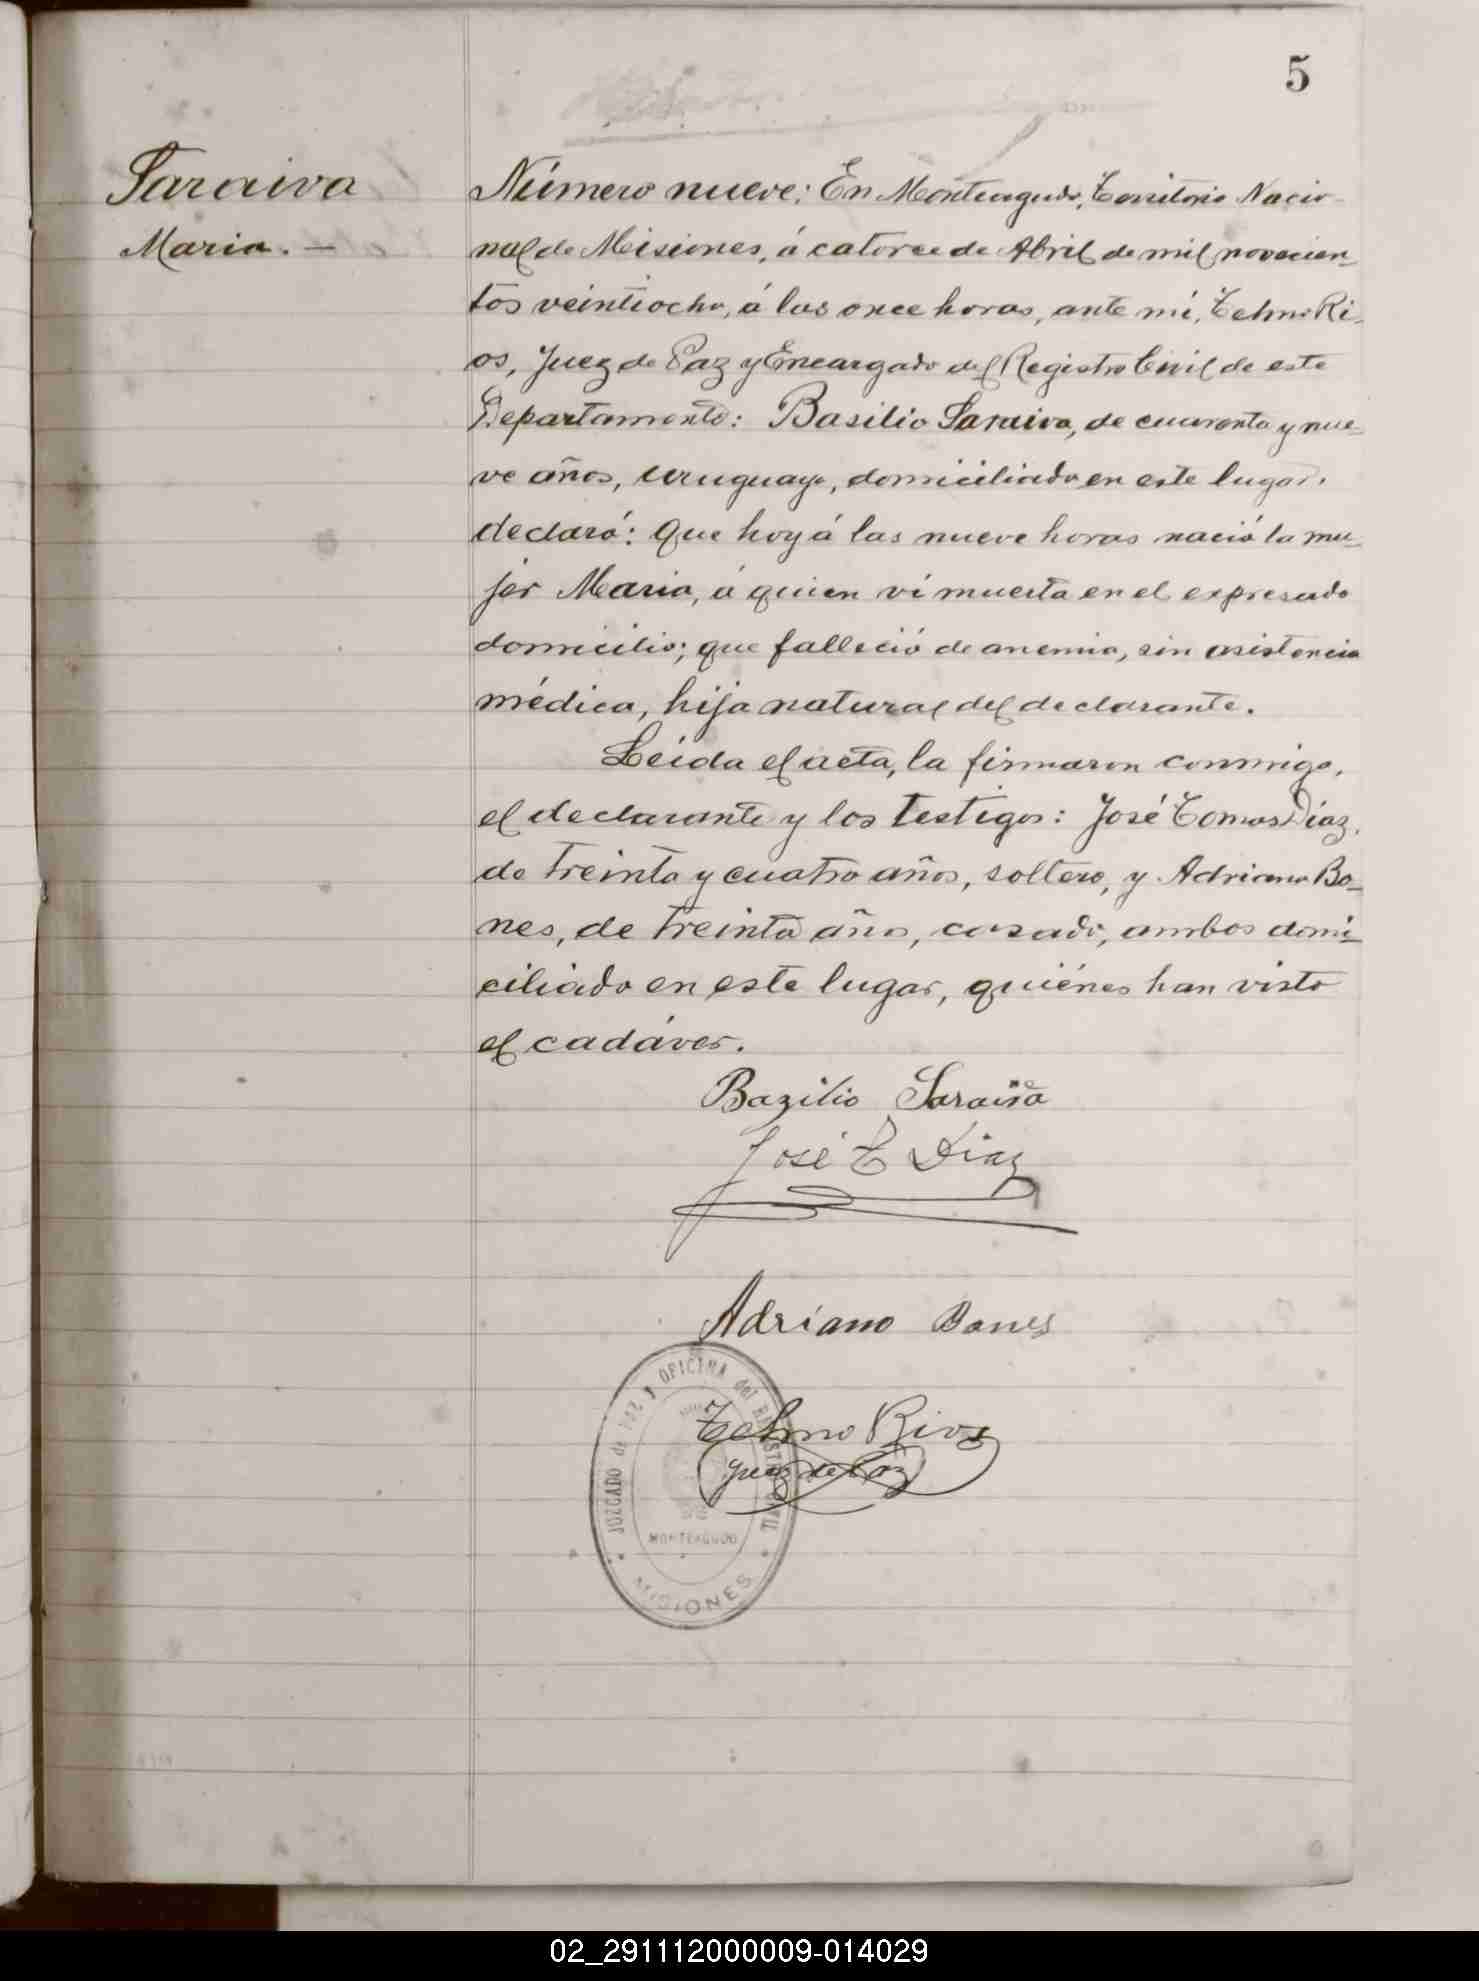 5
Saraiva
Maria. —
Número nueve: En Monteagudo, Territorio Nacio-
nal de Misiones, á catorce de Abril de mil novecien-
tos veintiocho, á las once horas, ante mí, Telmo Ri-
os, Juez de Paz y Encargado del Registro Civil de este
Departamento: Basilio Saraiva, de cuarenta y nue-
ve años, uruguayo, domiciliado en este lugar,
declaró: Que hoy á las nueve horas nació la mu-
jer Maria, á quien ví muerta en el expresado
domicilio; que falleció de anemia, sin asistencia
médica, hija natural del declarante.
Leída el acta, la firmaron conmigo,
el declarante y los testigos: José Tomas Díaz,
de treinta y cuatro años, soltero, y Adriano Bo-
nes, de treinta años, casado, ambos domi-
ciliado en este lugar, quiénes han visto
el cadáver.
Bazilio Saraiva
José T Diaz
Adriano Bones
Telmo Rios
Juez de Paz
JUZGADO de PAZ y OFICINA del REGISTRO CIVIL
MONTEAGUDO
MISIONES
02_291112000009-014029